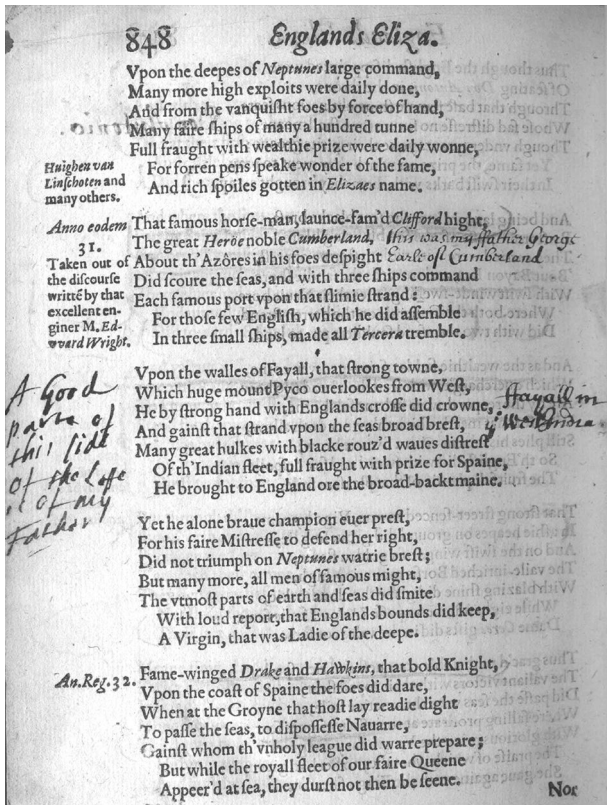 848 Englands Eliza.
Vpon the deepes of Neptunes large command,
Many more high exploits were daily done,
And from the vanquisht foes by force of hand,
Many faire ſhips of many a hundred tunne
Full fraught with wealthie prize were daily wonne,
For forren pens ſpeake wonder of the ſame,
And rich ſpoiles gotten in Elizaes name.
Huighen van
Linſchoten and
many others.
That famous horſe-man, launce-fam'd Clifford hight,
The great Heröe noble Cumberland, this was my ffather George
About th'Azôres in his foes deſpight Earle of Cumberland
Did ſcoure the ſeas, and with three ſhips command
Each famous port vpon that ſlimie ſtrand:
For thoſe few Engliſh, which he did aſſemble
In three ſmall ſhips, made all Tercera tremble.
Anno eodem
31.
Taken out of
the diſcourſe
writtē by that
excellent en-
giner M. Ed-
vvard Wright.
Vpon the walles of Fayall, that ſtrong towne,
Which huge mound Pyco ouerlookes from Weſt,
He by ſtrong hand with Englands croſſe did crowne,
And gainſt that ſtrand vpon the ſeas broad breſt,
Many great hulkes with blacke rouz'd waues diſtreſt
Of th'Indian fleet, full fraught with prize for Spaine,
He brought to England ore the broad-backt maine.
A Good
parte of
this ſide
of the Lefe
of my
Father
ffayall in
yͤ West India.
Yet he alone braue champion euer preſt,
For his faire Miſtreſſe to defend her right,
Did not triumph on Neptunes watrie breſt;
But many more, all men of famous might,
The vtmoſt parts of earth and ſeas did ſmite
With loud report, that Englands bounds did keep,
A Virgin, that was Ladie of the deepe.
An. Reg. 32.
Fame-winged Drake and Hawkins, that bold Knight,
Vpon the coaſt of Spaine the foes did dare,
When at the Groyne that hoſt lay readie dight
To paſſe the ſeas, to diſpoſſeſſe Nauarre,
Gainſt whom th'vnholy league did warre prepare;
But while the royall fleet of our faire Queene
Appeer'd at ſea, they durſt not then be ſeene.
Nor